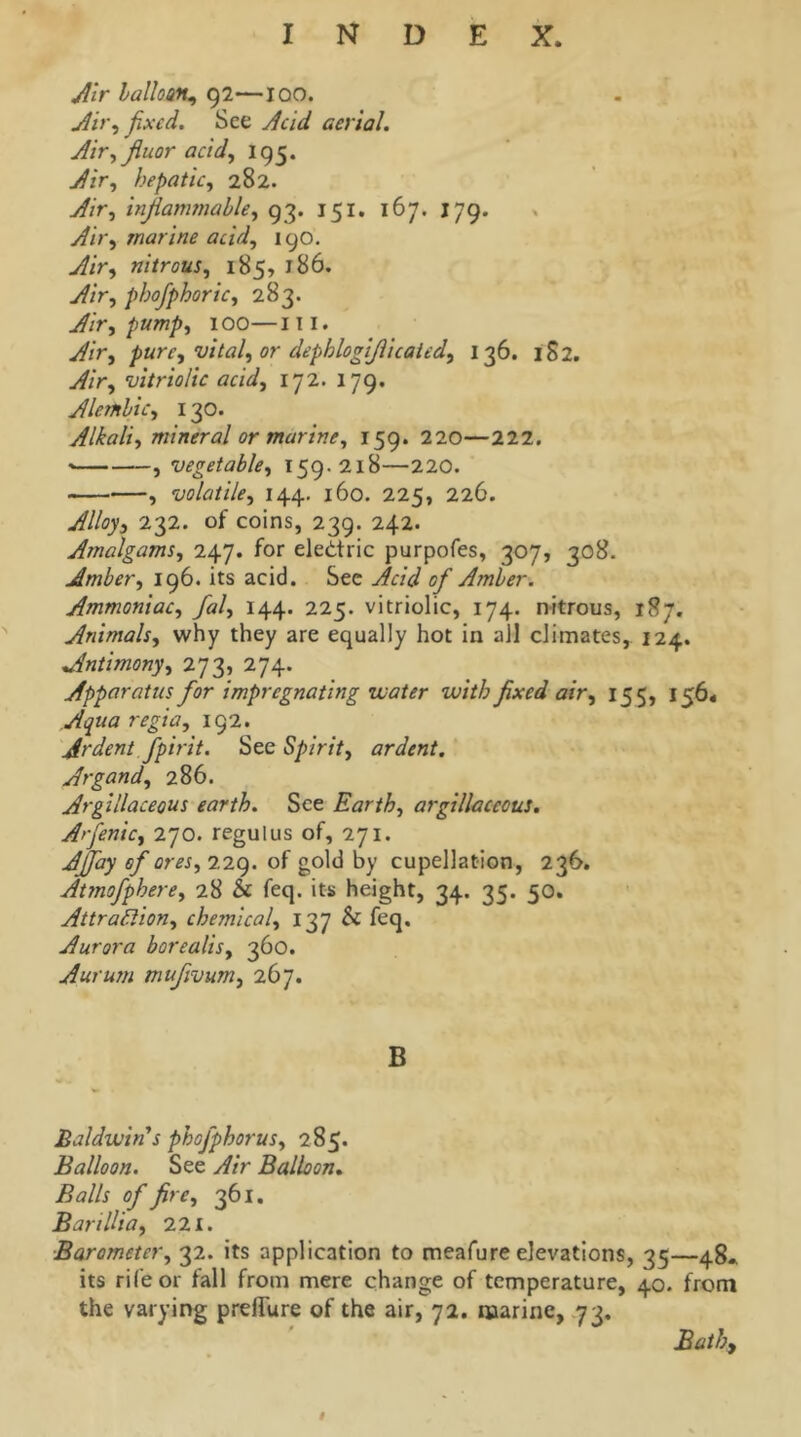 I N D E X.
Air balloon, 92—100.
Air, fixed. See Acid aerial.
Air, fluor acid, 195.
Air, hepatic, 282.
Air, inflammable, 93. 151. 167. 179.
Air, marine acid, 190.
Air, nitrous, 185, 186.
Air, phoſphoric, 283.
Air, pump, 100—111.
Air, pure, vital, or dephlogiſticated, 136. 182.
Air, vitriolic acid, 172. 179.
Alembic, 130.
Alkali, mineral or marine, 159. 220—222.
———, vegetable, 159. 218—220.
———, volatile, 144. 160. 225, 226.
Alloy, 232. of coins, 239. 242.
Amalgams, 247. for electric purpoſes, 307, 308.
Amber, 196. its acid. See Acid of Amber.
Ammoniac, ſal, 144. 225. vitriolic, 174. nitrous, 187.
Animals, why they are equally hot in all climates, 124.
Antimony, 273, 274.
Apparatus for impregnating water with fixed air, 155, 156.
Aqua regia, 192.
Ardent ſpirit. See Spirit, ardent.
Argand, 286.
Argillaceous earth. See Earth, argillaceous.
Arſenic, 270. regulus of, 271.
Aſſay of ores, 229. of gold by cupellation, 236.
Atmoſphere, 28 & ſeq. its height, 34. 35. 50.
Attraction, chemical, 137 & ſeq.
Aurora borealis, 360.
Aurum muſivum, 267.
B
Baldwin's phoſphorus, 285.
Balloon. See Air Balloon.
Balls of fire, 361.
Barillia, 221.
Barometer, 32. its application to meaſure elevations, 35—48.
its riſe or fall from mere change of temperature, 40. from
the varying preſſure of the air, 72. marine, 73.
Bath,